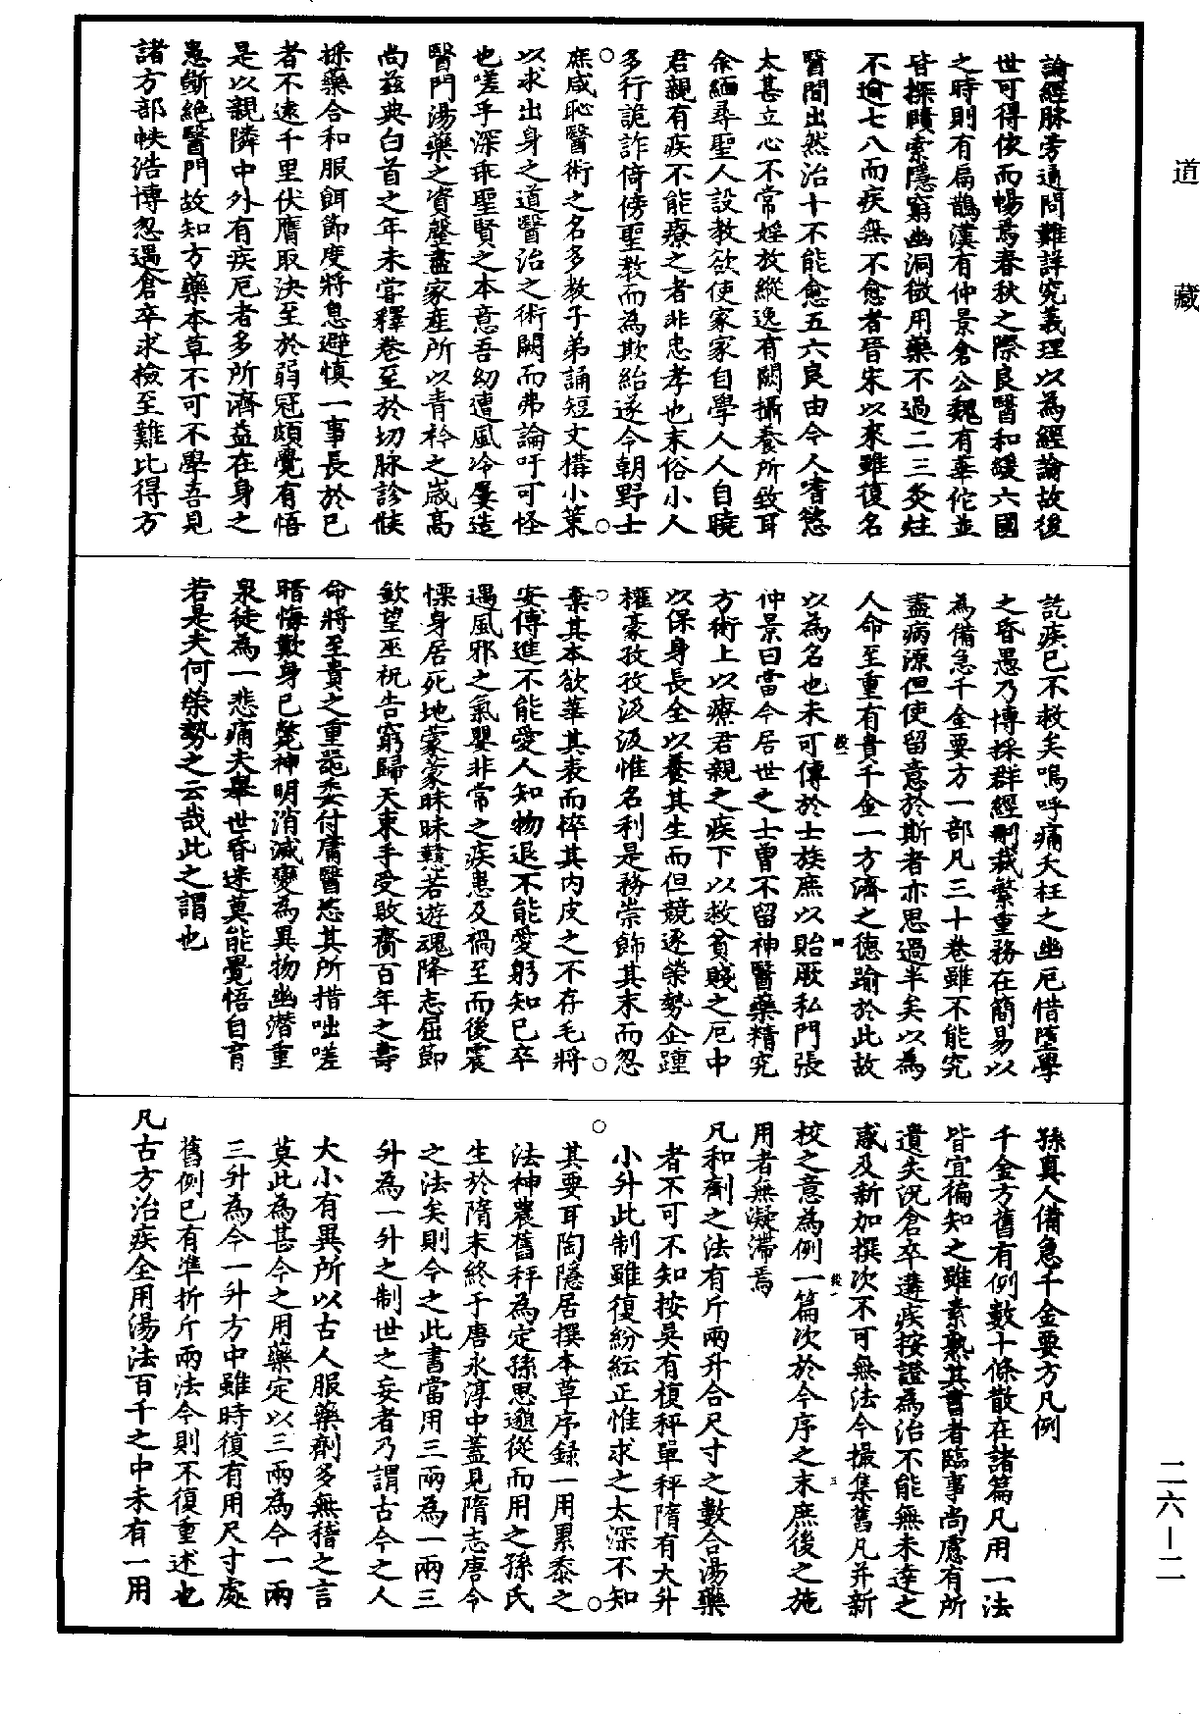 道藏
論經脉旁通問難詳究義理以為經論故後
世可得依而暢焉春秋之際良醫和緩六國
之時則有扁鵲漢有仲景倉公魏有華佗並
皆探賾索隱窮幽洞微用藥不過二三灸炷
不逾七八而疾無不愈者晉宋以來雖復名
醫間出然治十不能愈五六良由今人嗜慾
太甚立心不常婬放縱逸有闕攝養所致耳
余緬尋聖人設教欲使家家自學人人自曉
君親有疾不能療之者非忠孝也末俗小人
多行詭詐倚傍聖教而為欺紿遂令朝野士
庶咸恥醫術之名多教子弟誦短文構小策
以求出身之道醫治之術闕而弗論吁可怪
也嗟乎深乖聖賢之本意吾幼遭風冷屢造
醫門湯藥之資罄盡家產所以青衿之歲高
尚茲典白首之年未嘗釋卷至於切脉診候
採藥合和服餌節度將息避慎一事長於已
者不遠千里伏膺取決至於弱冠頗覺有悟
是以親隣中外有疾厄者多所濟益在身之
患斷絕醫門故知方藥本草不可不學吾見
諸方部帙浩博忽遇倉卒求檢至難比得方
訖疾已不救矣嗚呼痛夭枉之幽厄惜墮學
之昏愚乃博採群經刪裁繁重務在簡易以
為備急千金要方一部凡三十卷雖不能究
盡病源但使留意於斯者亦思過半矣以為
人命至重有貴千金一方濟之德踰於此故
以為名也未可傳於士族庶以貽厥私門張
仲景曰當今居世之士曾不留神醫藥精究
方術上以療君親之疾下以救貧賤之厄中
以保身長全以養其生而但競逐榮勢企踵
權豪孜孜汲汲惟名利是務崇飾其末而忽
棄其本欲華其表而悴其內皮之不存毛將
安傅進不能愛人知物退不能愛躬知己卒
遇風邪之氣嬰非常之疾患及禍至而後震
慄身居死地蒙蒙昧昧戇若遊魂降志屈節
欽望巫祝告窮歸天束手受敗齎百年之壽
命將至貴之重器委付庸醫恣其所措咄嗟
喑悔歎身已斃神明消滅變為異物幽潛重
泉徒為一悲痛夫舉世昏迷莫能覺悟自育
若是夫何榮勢之云哉此之謂也
孫真人備急千金要方凡例
千金方舊有例數十條散在諸篇凡用一法
皆宜徧知之雖素熟其書者臨事尚慮有所
遺失況倉卒遘疾按證為治不能無未達之
惑及新加撰次不可無法今撮集舊凡并新
校之意為例一篇次於今序之末庶後之施
用者無凝滯焉
凡和劑之法有斤兩升合尺寸之數合湯藥
者不可不知按吳有複秤單秤隋有大升
小升此制雖復紛紜正惟求之太深不知
其要耳陶隱居撰本草序錄一用累黍之
法神農舊秤為定孫思邈從而用之孫氏
生於隋末終于唐永淳中蓋見隋志唐令
之法矣則今之此書當用三兩為一兩三
升為一升之制世之妄者乃謂古今之人
大小有異所以古人服藥劑多無稽之言
莫此為甚今之用藥定以三兩為今一兩
三升為今一升方中雖時復有用尺寸處
舊例已有準折斤兩法今則不復重述也
凡古方治疾全用湯法百千之中未有一用
二六-二